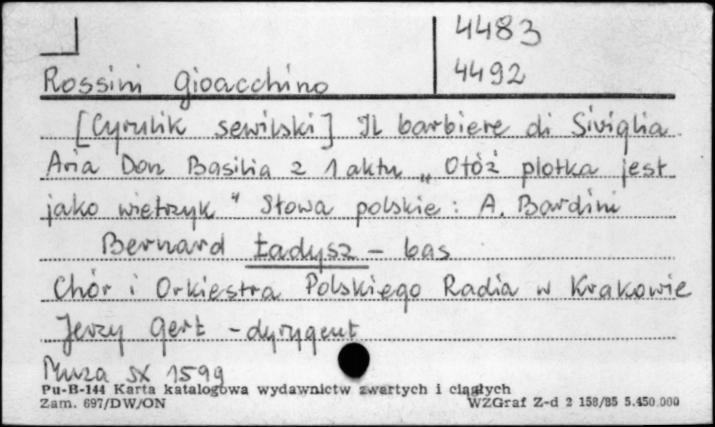 4483
Rossini Gioacchino 4492
[Cyrulik sewilski] Il barbiere di Siviglia
Aria Don Basilia z 1 aktu „Otóż plotka jest
jako wietrzyk" Słowa polskie: A. Bardini
Bernard Ładysz - bas
Chór i Orkiestra Polskiego Radia w Krakowie
Jerzy Gert - dyrygent
Muza SX 1599
Pu-B-144 Karta katalogowa wydawnictw zwartych i ciągłych
Zam. 697/DW/ON WZGraf Z-d 2 158/85 5.450.000